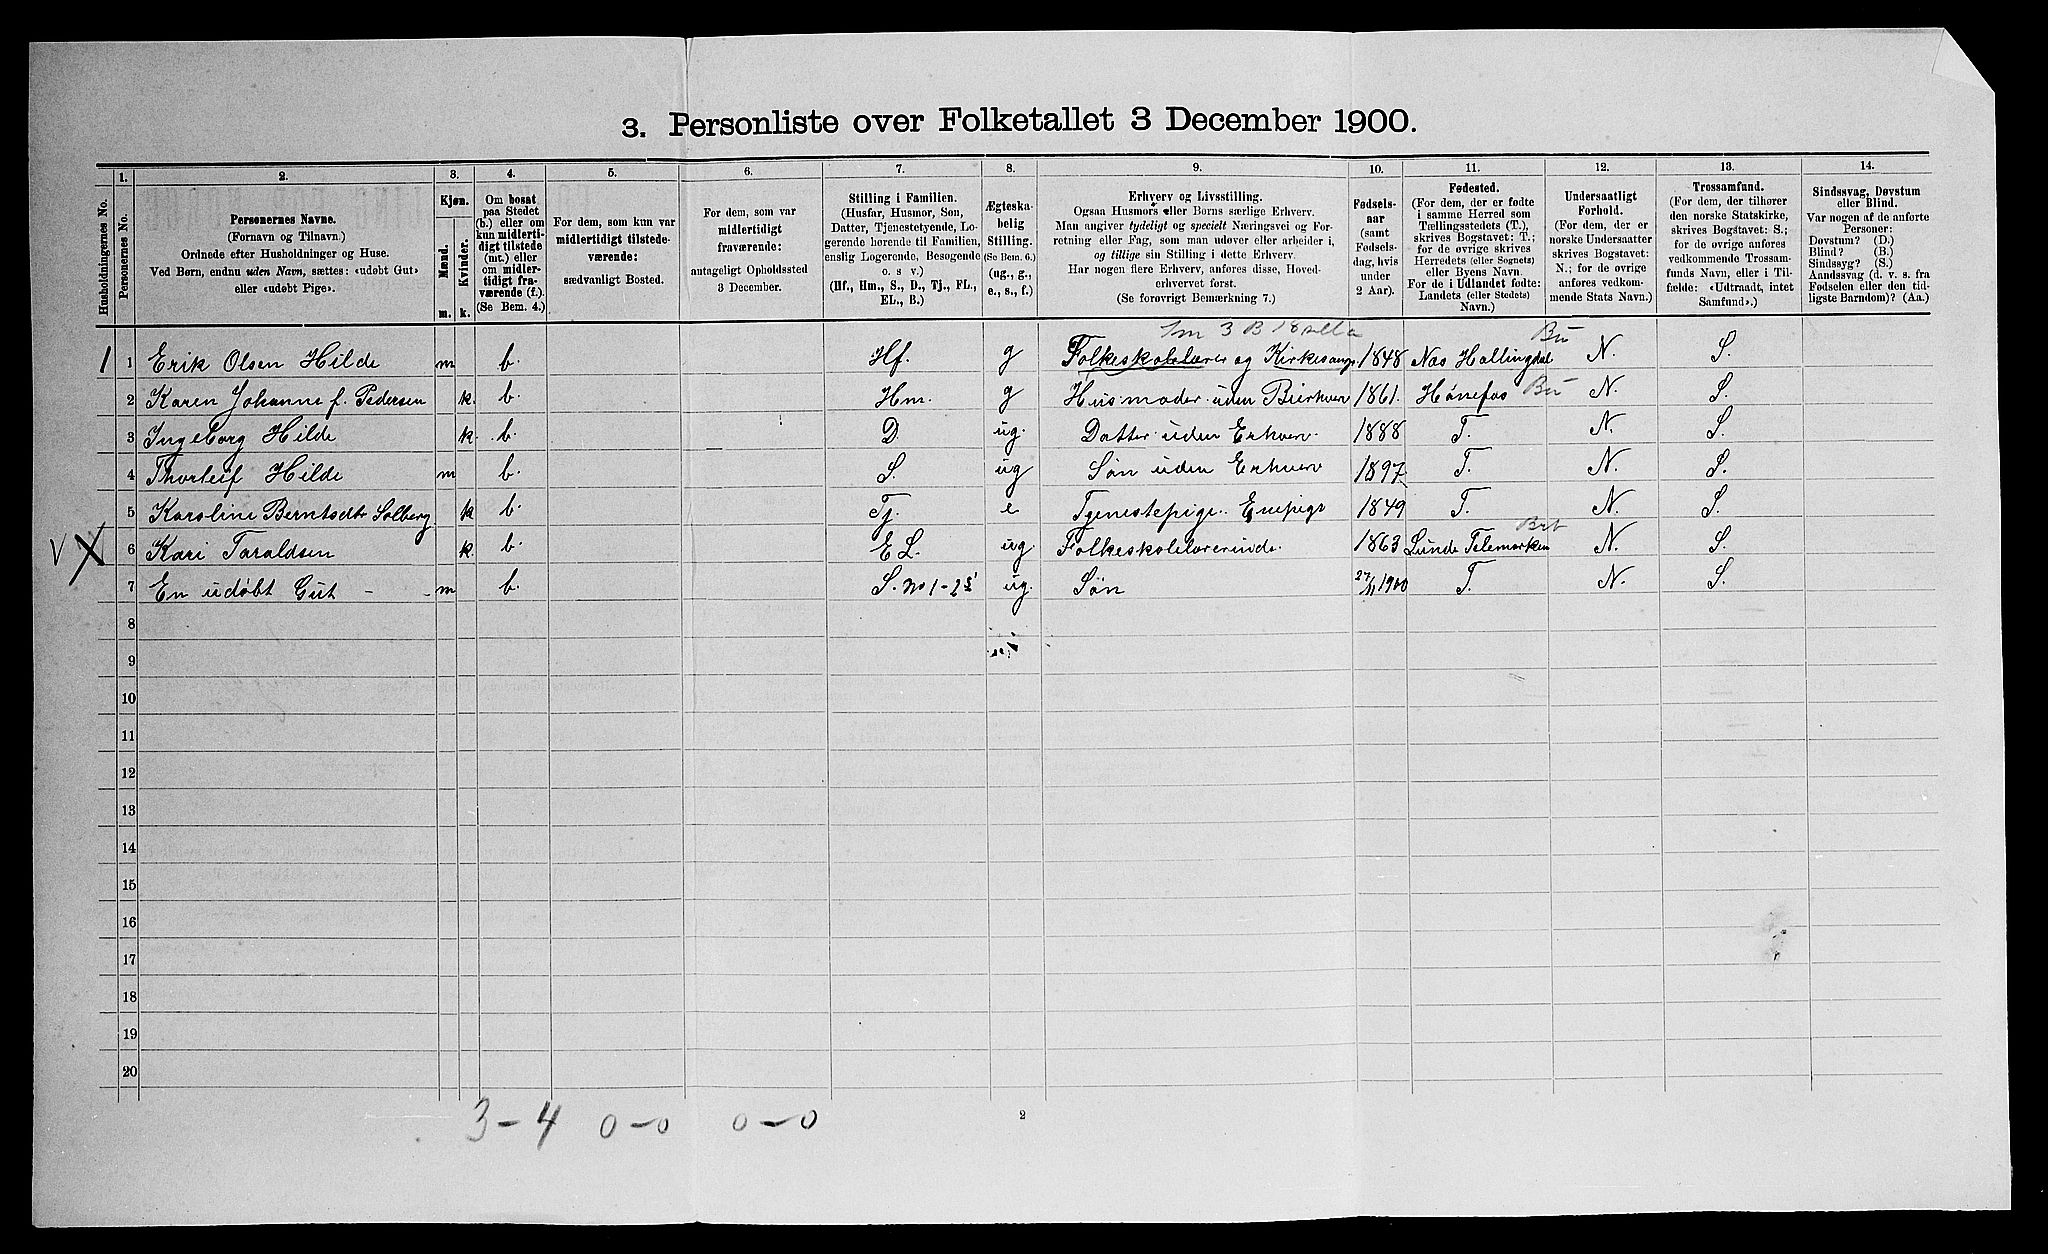 3. Personliste over Folketallet 3 December 1900.
Husholdningernes No.
1.
Personernes No.
2.
Personernes Navne.
(Fornavn og Tilnavn.)
Ordnede efter Husholdninger og Huse.
Ved Børn, endnu uden Navn, sættes: «udøbt Gut»
eller «udøbt Pige».
3.
Kjøn.
Mænd.
Kvinder.
m.
k.
4.
Om bosat
paa Stedet
(b.) eller om
kun midlerti-
digt tilstede
(mt.) eller
om midler-
tidigt fra-
værende (f.).
(Se Bem. 4.)
5.
For dem, som kun var
midlertidigt tilstede-
værende:
sædvanligt Bosted.
6.
For dem, som var
midlertidigt
fraværende:
antageligt Opholdssted
3 December.
7.
Stilling i Familien.
(Husfar, Husmor, Søn,
Datter, Tjenestetyende, Lo-
gerende hørende til Familien,
enslig Logerende, Besøgende
o. s v.)
(Hf., Hm., S., D., Tj., FL.,
EL., B.)
8.
Ægteska-
belig
Stilling.
(Se Bem. 6.)
(ug., g.,
e., s., f.)
9.
Erhverv og Livsstilling.
Ogsaa Husmors eller Børns særlige Erhverv.
Man angiver tydeligt og specielt Næringsvei og For-
retning eller Fag, som man udøver eller arbeider i,
og tillige sin Stilling i dette Erhverv.
Har nogen flere Erhverv, anføres disse, Hoved-
erhvervet først.
(Se forøvrigt Bemærkning 7.)
10.
Fødsels-
aar
(samt
Fødsels-
dag, hvis
under
2 Aar).
11.
Fødested.
(For dem, der er fødte
i samme Herred som
Tællingsstedets (T.),
skrives Bogstavet: T.;
for de øvrige skrives
Herredets (eller Sognets)
eller Byens Navn.
For de i Udlandet fødte:
Landets (eller Stedets)
Navn.)
12.
Undersaatligt
Forhold.
(For dem, der er
norske Undersaatter
skrives Bogstavet:
N.; for de øvrige
anføres vedkom-
mende Stats Navn.)
13.
Trossamfund.
(For dem, der tilhører
den norske Statskirke,
skrives Bogstavet: S.;
for de øvrige anføres
vedkommende Trossam-
funds Navn, eller i Til-
fælde: «Udtraadt, intet
Samfund».)
14.
Sindssvag, Døvstum
eller Blind.
Var nogen af de anførte
Personer:
Døvstum? (D.)
Blind? (B.)
Sindssyg? (S.)
Aandssvag (d. v. s. fra
Fødselen eller den tid-
ligste Barndom)? (Aa.)
1 1 Erik Olsen Hilde m b. Hf. g Folkeskolelærer og Kirkesang. 1848 Næs Hallingdal Bu N. S.
2 Karen Johanne f. Pedersen k. b. Hm. g Husmoder uden Bierhverv 1861. Hønefos Bu N. S.
3 Ingeborg Hilde k. b. D. ug. Datter uden Erhverv. 1888 T. N. S.
4 Thorleif Hilde m b. S. ug Søn uden Erhverv 1897 T. N. S.
5 Karoline Berntsdtr Solberg k b. Tj. e Tjenestepige. Enepige 1849 T. N. S.
V X 6 Kari Taraldsen k. b. EL. ug. Folkeskolelærerinde. 1863 Lunde Telemarken Brt N. S.
7 En udøbt Gut - - m b. S. No 1-2s ug. Søn 27/11 1900 T. N. S.
8
9
10
11
12
13
14
15
16
17
18
19
20
3-4 0-0 0-0
2